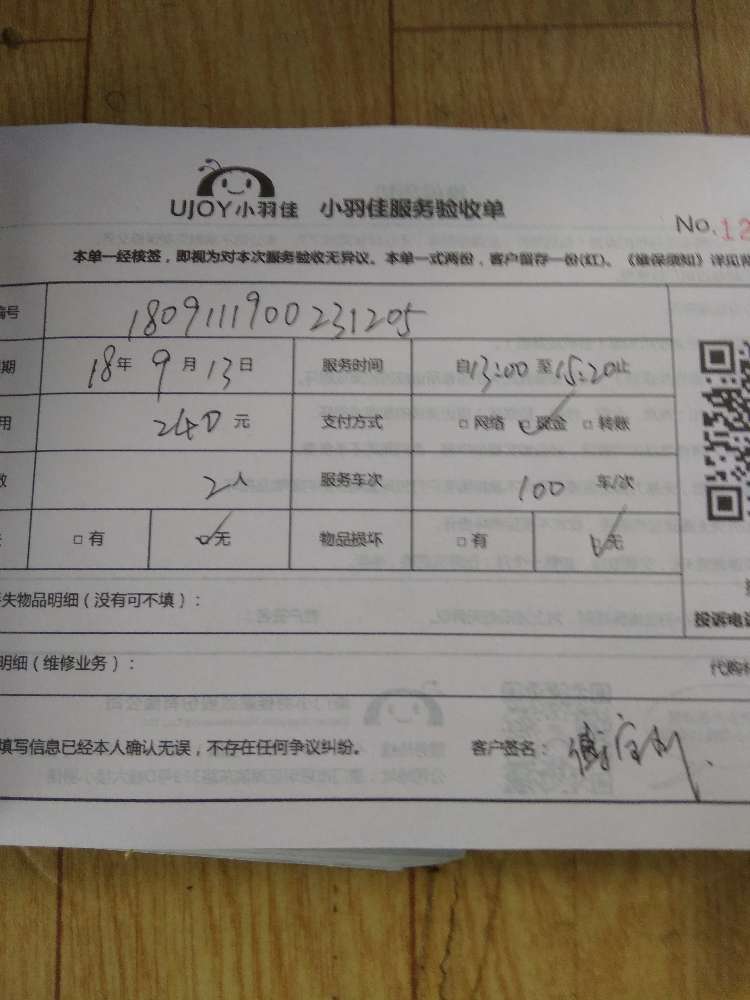 UJOY小羽佳 小羽佳服务验收单
No.12
本单一经核签，即视为对本次服务验收无异议。本单一式两份，客户留存一份(红)。《维保须知》详见
编号 1809111900231205
期 18年9月13日 服务时间 自13:00至15:20止
用 240元 支付方式 □网络 □现金 □转账
数 2人 服务车次 100 车/次
□有 □无 物品损坏 □有 □无
失物品明细（没有可不填）：
投诉电话
明细（维修业务）：
代购
填写信息已经本人确认无误，不存在任何争议纠纷。 客户签名：